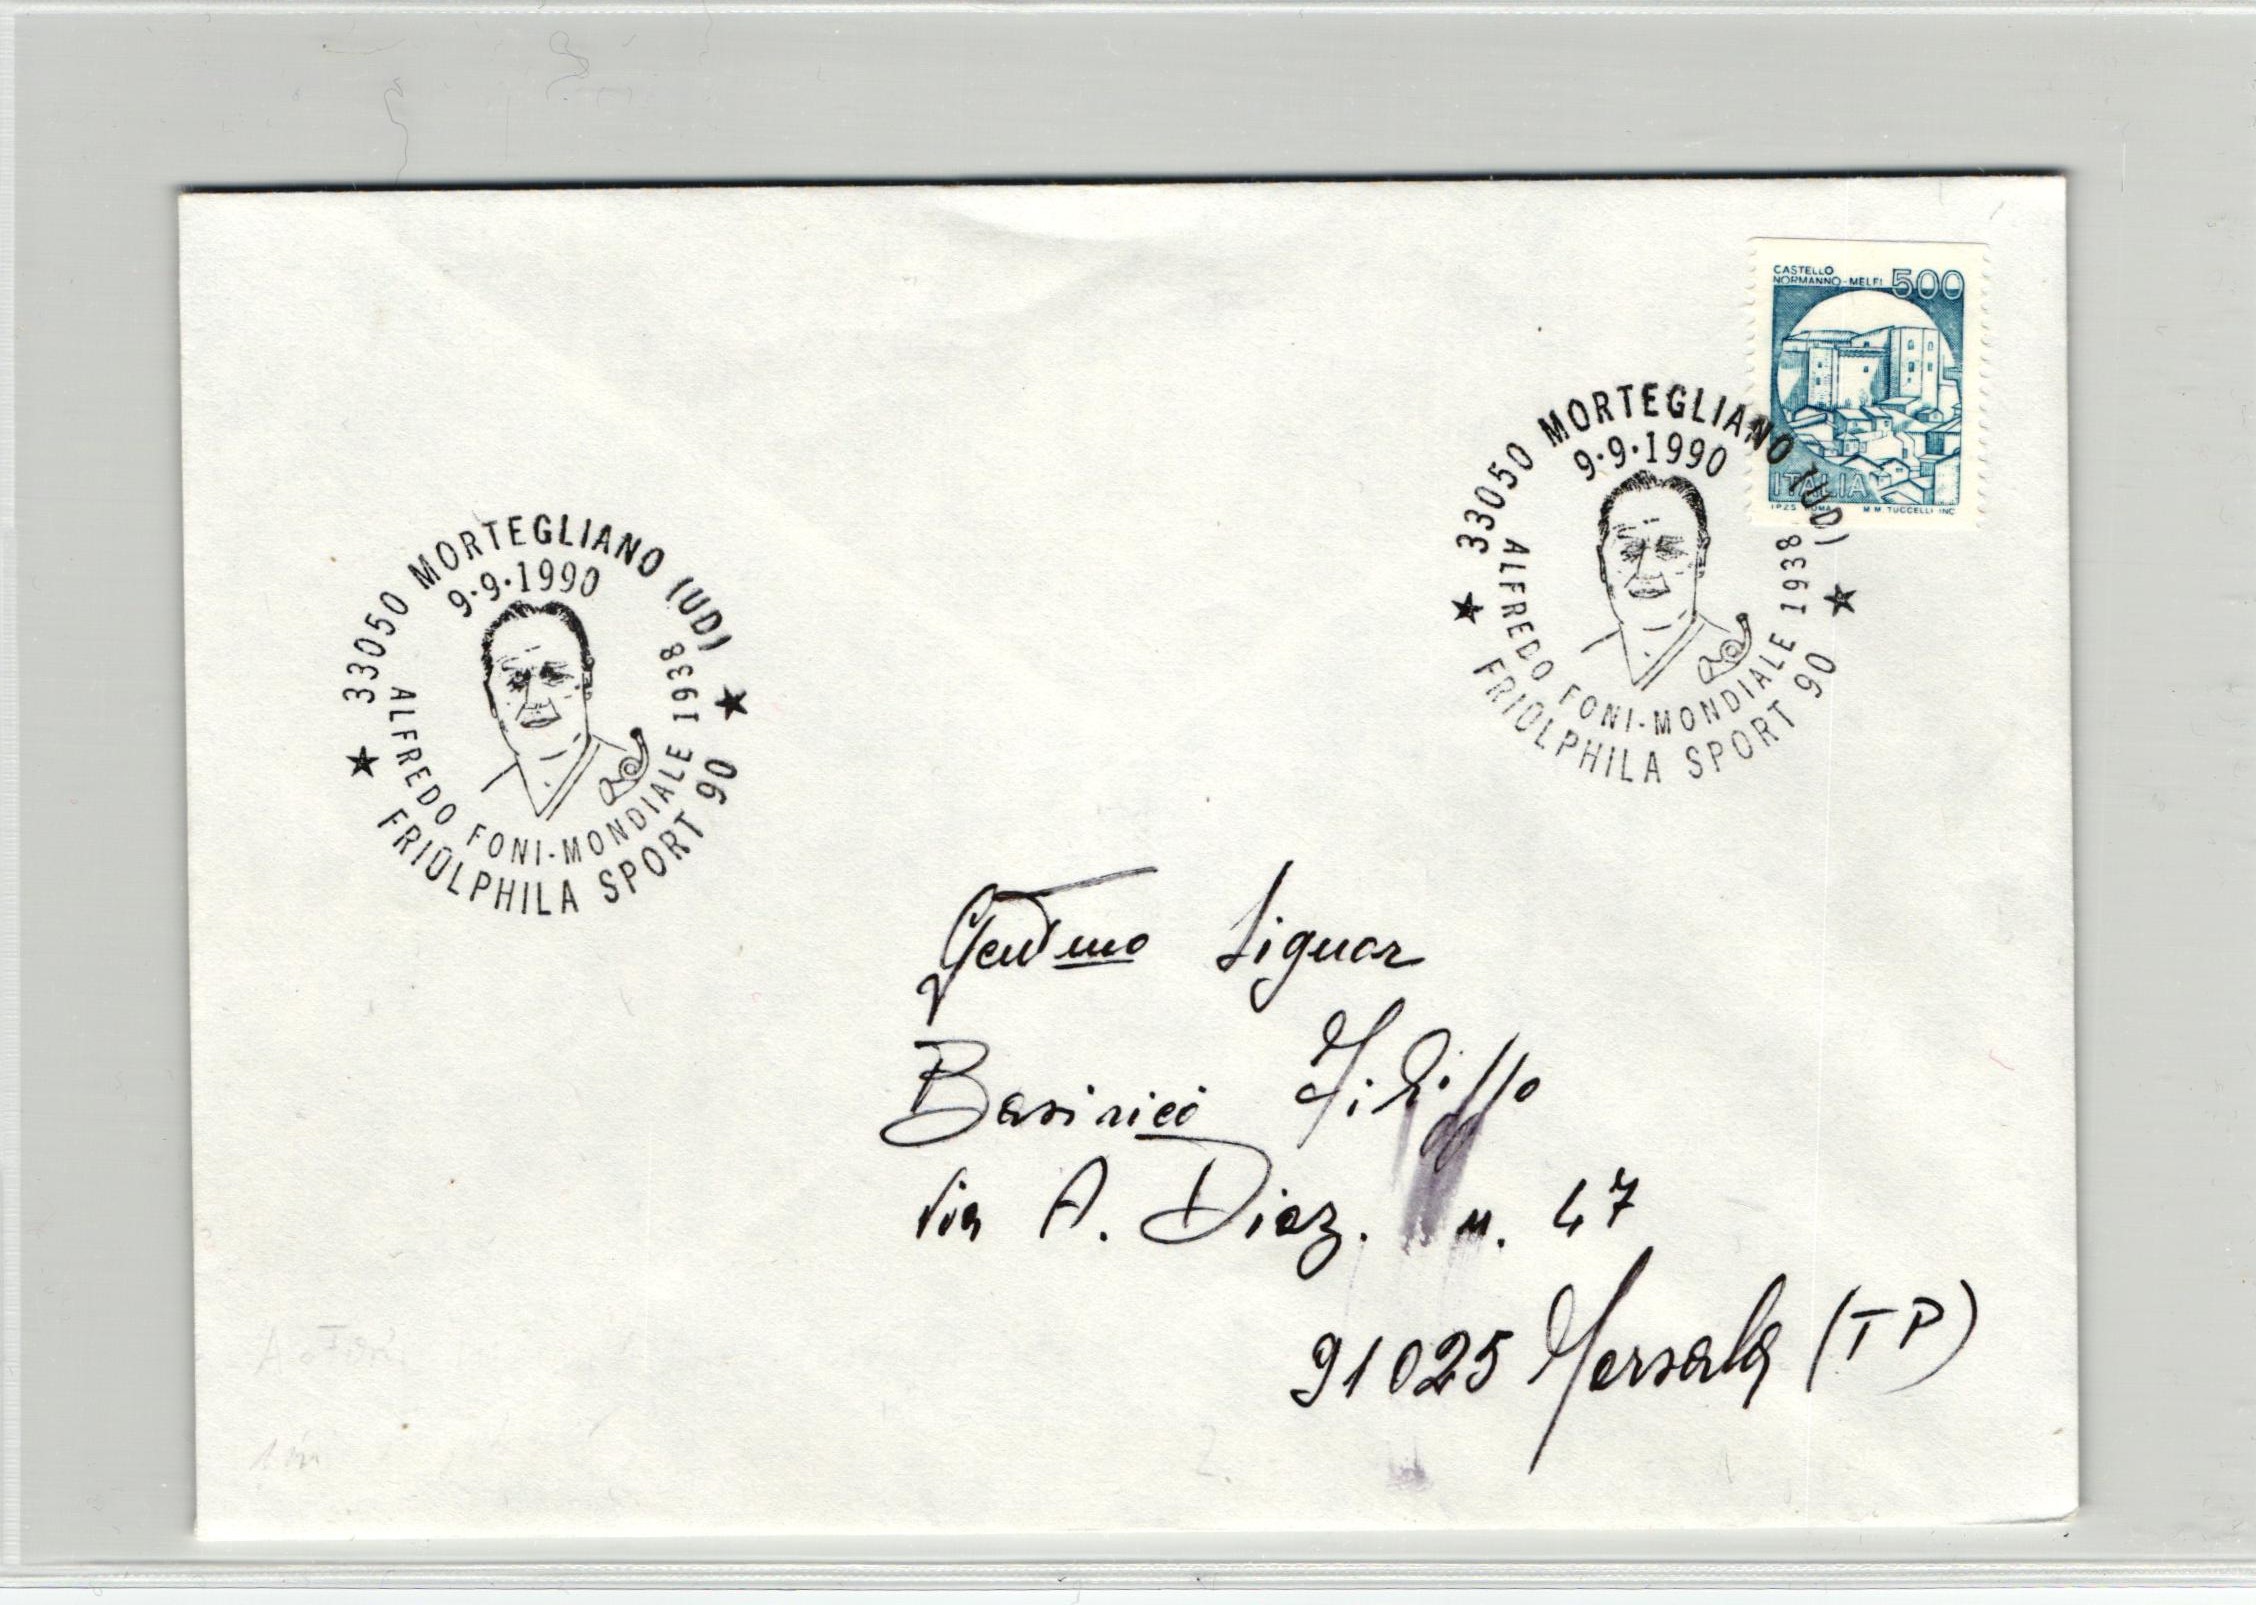 CASTELLO
NORMANNO-MELFI 500
ITALIA
I.P.Z.S. ROMA M.M. TUCCELLI INC.
33050 MORTEGLIANO (UD)
9·9·1990
ALFREDO FONI-MONDIALE 1938
FRIÛLPHILA SPORT 90
33050 MORTEGLIANO (UD)
9·9·1990
ALFREDO FONI-MONDIALE 1938
FRIÛLPHILA SPORT 90
Gentmo Signor
Basiricò Filippo
Via A. Diaz. n. 47
91025 Marsala (TP)